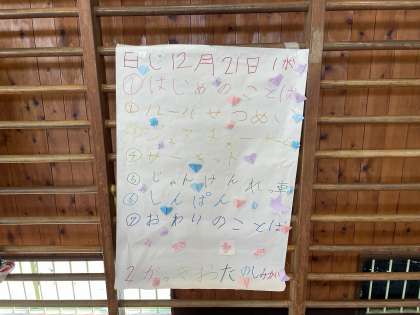 日じ12月21日(水
①はじめのことば
②ルールせつめい
④サーキット
⑤じゃんけんれっ車
⑥しんぱん
⑦おわりのことば
2 がっきおわたのしみかい